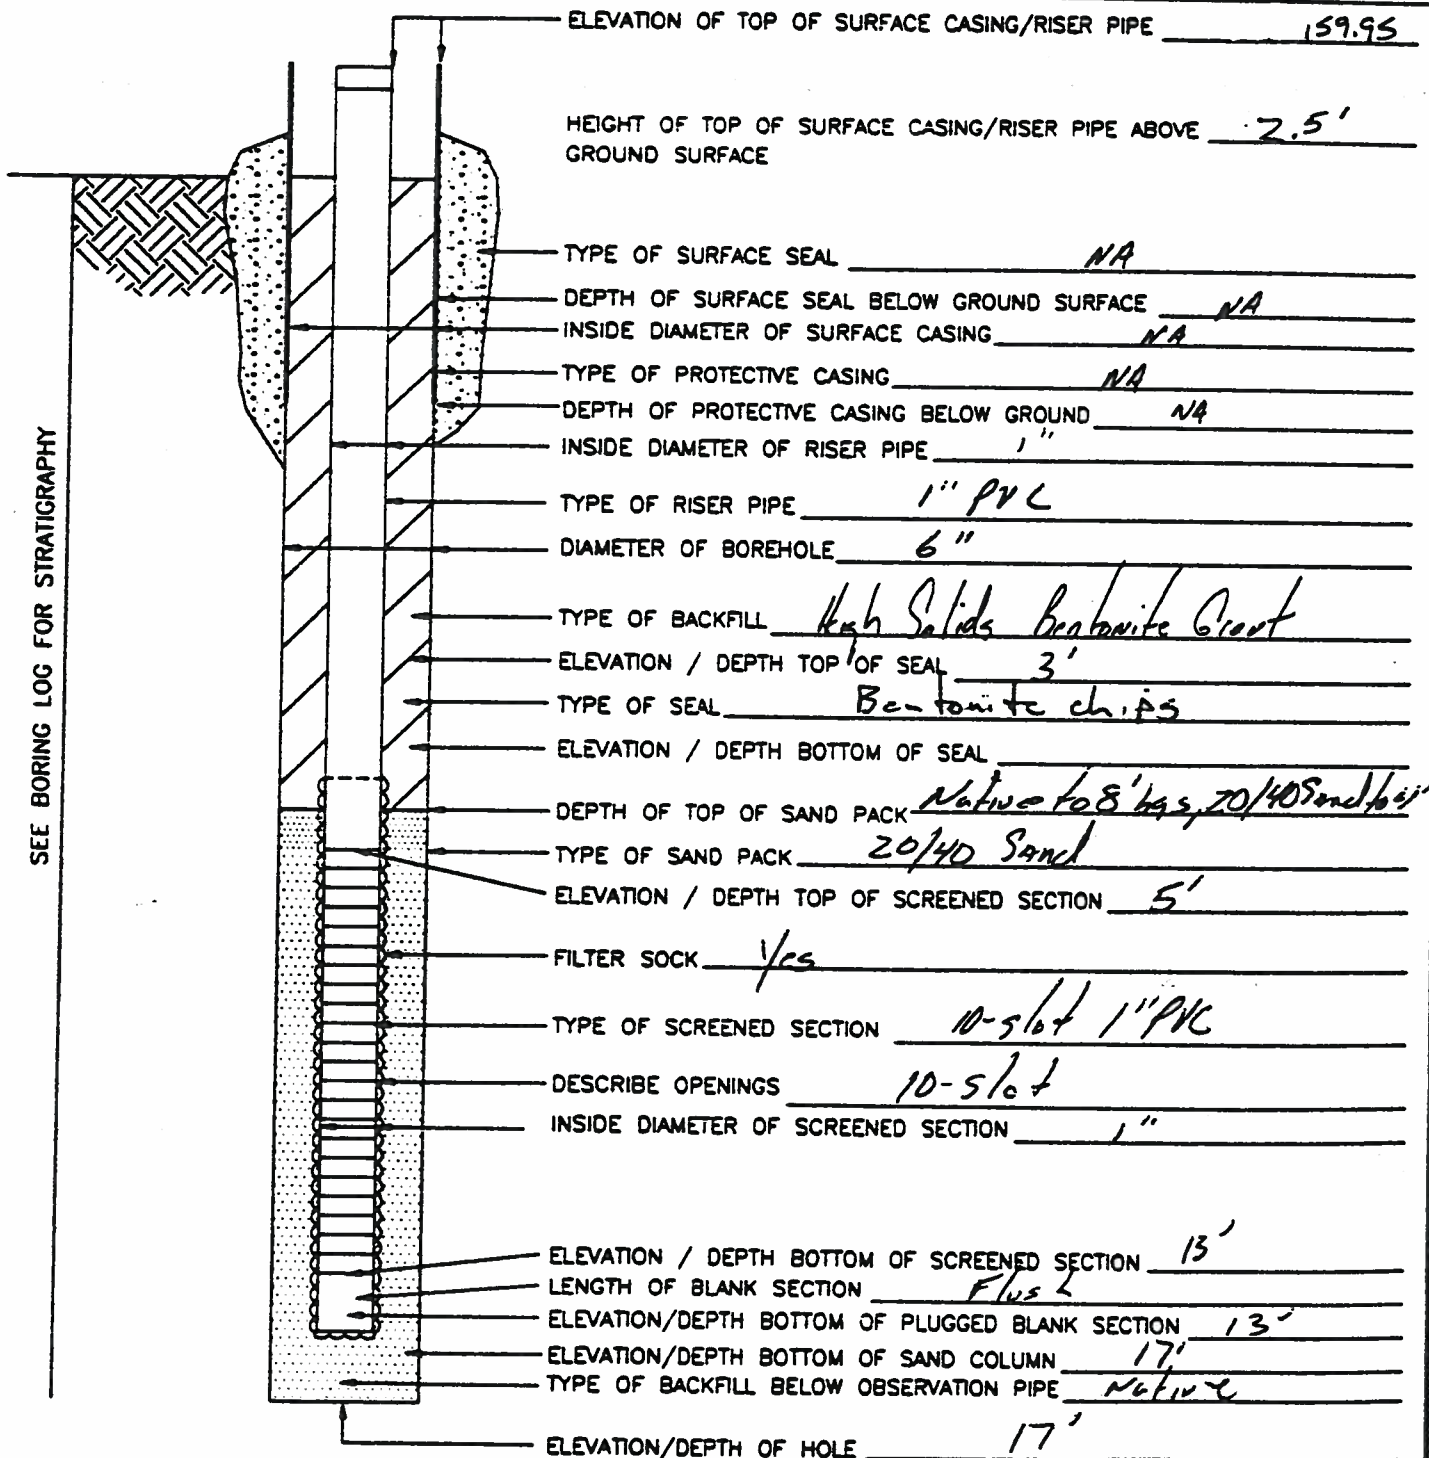 ELEVATION OF TOP OF SURFACE CASING/RISER PIPE 159.95
HEIGHT OF TOP OF SURFACE CASING/RISER PIPE ABOVE 2.5'
GROUND SURFACE
TYPE OF SURFACE SEAL NA
DEPTH OF SURFACE SEAL BELOW GROUND SURFACE NA
INSIDE DIAMETER OF SURFACE CASING NA
TYPE OF PROTECTIVE CASING NA
DEPTH OF PROTECTIVE CASING BELOW GROUND NA
INSIDE DIAMETER OF RISER PIPE 1"
TYPE OF RISER PIPE 1" PVC
DIAMETER OF BOREHOLE 6"
TYPE OF BACKFILL High Solids Bentonite Grout
ELEVATION / DEPTH TOP OF SEAL 3'
TYPE OF SEAL Bentonite chips
ELEVATION / DEPTH BOTTOM OF SEAL
DEPTH OF TOP OF SAND PACK Native to 8' bgs, 20/40 Sand to 4'
TYPE OF SAND PACK 20/40 Sand
ELEVATION / DEPTH TOP OF SCREENED SECTION 5'
FILTER SOCK Yes
TYPE OF SCREENED SECTION 10-slot 1" PVC
DESCRIBE OPENINGS 10-slot
INSIDE DIAMETER OF SCREENED SECTION 1"
ELEVATION / DEPTH BOTTOM OF SCREENED SECTION 13'
LENGTH OF BLANK SECTION Flush
ELEVATION/DEPTH BOTTOM OF PLUGGED BLANK SECTION 13'
ELEVATION/DEPTH BOTTOM OF SAND COLUMN 17'
TYPE OF BACKFILL BELOW OBSERVATION PIPE Native
ELEVATION/DEPTH OF HOLE 17'
SEE BORING LOG FOR STRATIGRAPHY